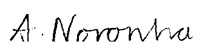 A. Noronha